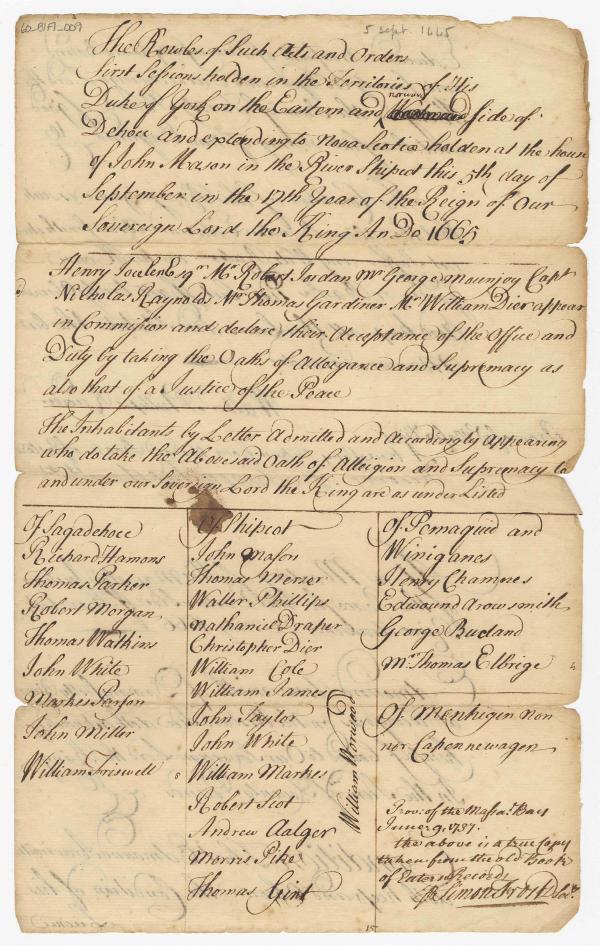 60_BIFI_009
5 Sept 1665
The Rowles of Such Acts and Orders
first Sessions holden in the Territories of His
Duke of York on the Eastern and norward side of
Dehoce and extending to Nova Scotia holden at the house
of John Mason in the River Shipcot this 5th day of
September in the 17th Year of the Reign of Our
Sovereign Lord the King An Do 1665
Henry Joulen Esqr Mr Robert Jordan Mr George Mounjoy Capt
Nicholas Raynold Mr Thomas Gardiner Mr William Dier appear
in Commission and declare their Acceptance of the Office and
Duty by taking the Oaths of Alleigance and Supremacy as
also that of a Justice of the Peace
The Inhabitants by Letter Admitted and Accordingly Appearing
who do take the Abovesaid Oath of Alleigion and Supremacy to
and under our Soveriign Lord the King are as under Listed
Of Sagadehoce
Richard Hamons
Thomas Parker
Robert Morgan
Thomas Watkins
John White
Markes Parson
John Miller
William Friswell
Of Shipcot
John Mason
Thomas Mercer
Walter Phillips
Nathaniel Draper
Christopher Dier
William Cole
William James
John Taylor
John White
William Markes
Robert Scot
Andrew Aalger
Morris Pike
Thomas Gint
William Norwood
Of Pemaquid and
Winiganes
Henry Chamnes
Edwound Arowsmith
George Bucland
Mr Thomas Elbrige
Of Menhigen Non
nor Capennewagen
Prov: of the Massats Bay
June 9, 1737.
the above is a true Copy
taken from the old Book
of Eatern Records
Simon Frost
15